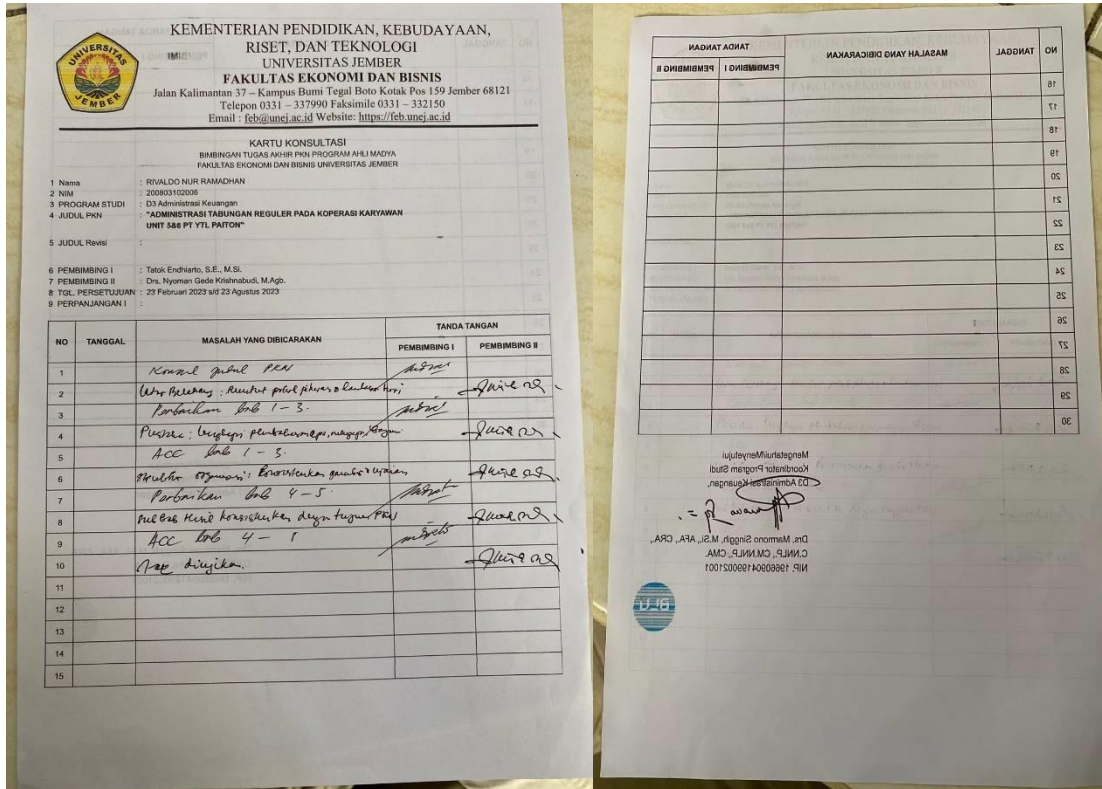 UNIVERSITAS JEMBER
KEMENTERIAN PENDIDIKAN, KEBUDAYAAN,
RISET, DAN TEKNOLOGI
UNIVERSITAS JEMBER
FAKULTAS EKONOMI DAN BISNIS
Jalan Kalimantan 37 – Kampus Bumi Tegal Boto Kotak Pos 159 Jember 68121
Telepon 0331 – 337990 Faksimile 0331 – 332150
Email : feb@unej.ac.id Website: https://feb.unej.ac.id
KARTU KONSULTASI
BIMBINGAN TUGAS AKHIR PKN PROGRAM AHLI MADYA
FAKULTAS EKONOMI DAN BISNIS UNIVERSITAS JEMBER
1 Nama : RIVALDO NUR RAMADHAN
2 NIM : 200803102006
3 PROGRAM STUDI : D3 Administrasi Keuangan
4 JUDUL PKN : "ADMINISTRASI TABUNGAN REGULER PADA KOPERASI KARYAWAN
UNIT 5&6 PT YTL PAITON"
5 JUDUL Revisi :
6 PEMBIMBING I : Tatok Endhiarto, S.E., M.Si.
7 PEMBIMBING II : Drs. Nyoman Gede Krishnabudi, M.Agb.
8 TGL. PERSETUJUAN : 23 Februari 2023 s/d 23 Agustus 2023
9 PERPANJANGAN I :
NO TANGGAL MASALAH YANG DIBICARAKAN TANDA TANGAN
PEMBIMBING I PEMBIMBING II
1 Konsul judul PKN
2 Latar Belakang :
3 Perbaikan bab 1-3.
4
5 ACC bab 1-3.
6 Struktur organisasi : Konsistenkan gambar uraian
7 Perbaikan bab 4-5.
8 Hasil konsistenkan dengan tujuan PKN
9 ACC bab 4-5
10 diujikan.
11
12
13
14
15
NO TANGGAL MASALAH YANG DIBICARAKAN TANDA TANGAN
PEMBIMBING I PEMBIMBING II
16
17
18
19
20
21
22
23
24
25
26
27
28
29
30
Mengetahui/Menyetujui
Koordinator Program Studi
D3 Administrasi Keuangan,
Drs. Marmono Singgih, M.Si., AFA., CRA.,
C.NNLP., CM.NNLP., CMA.
NIP. 196609041990021001
BLU